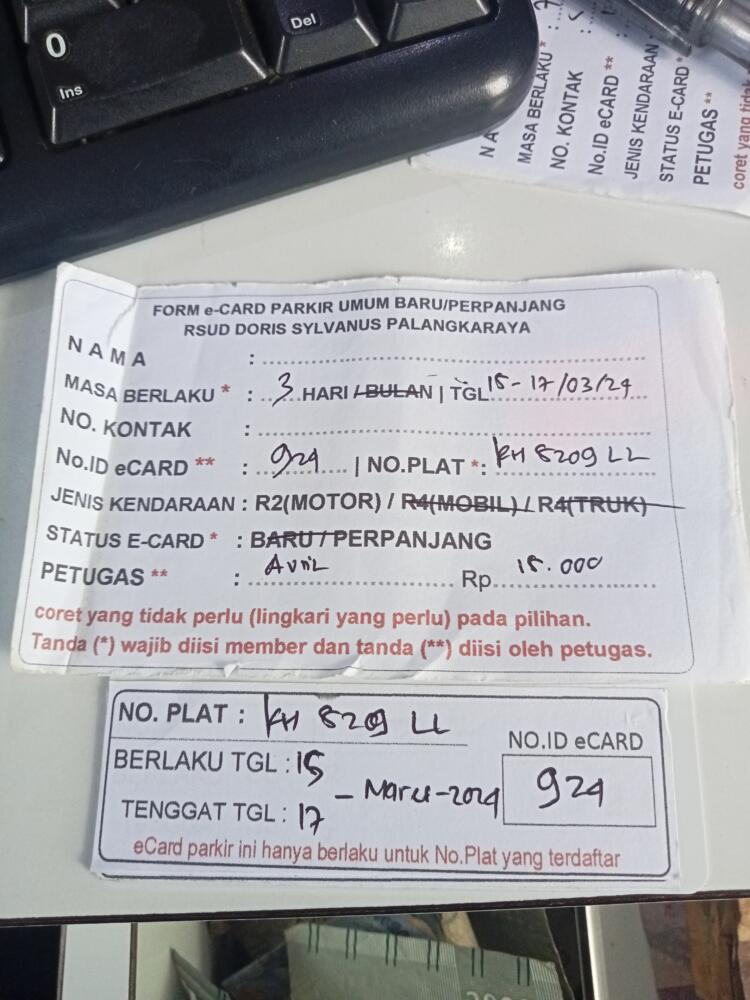 0
Ins
Del
NA
MASA BERLAKU * :
NO. KONTAK :
No.ID eCARD ** :
JENIS KENDARAAN
STATUS E-CARD *
PETUGAS **
coret yang tidak
FORM e-CARD PARKIR UMUM BARU/PERPANJANG
RSUD DORIS SYLVANUS PALANGKARAYA
NAMA :
MASA BERLAKU * : 3 HARI / BULAN | TGL 15 - 17/03/24
NO. KONTAK :
No.ID eCARD ** : 924 | NO.PLAT *: KH 8209 LL
JENIS KENDARAAN : R2(MOTOR) / R4(MOBIL) / R4(TRUK)
STATUS E-CARD * : BARU / PERPANJANG
PETUGAS ** : Avril Rp 15.000
coret yang tidak perlu (lingkari yang perlu) pada pilihan.
Tanda (*) wajib diisi member dan tanda (**) diisi oleh petugas.
NO. PLAT : KH 8209 LL
NO.ID eCARD
BERLAKU TGL : 15
924
TENGGAT TGL : 17 - Maret-2024
eCard parkir ini hanya berlaku untuk No.Plat yang terdaftar